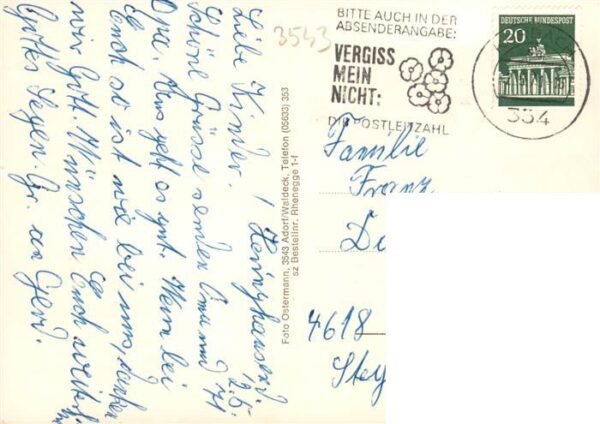 Liebe Kinder! Henninghausen,
Schöne Grüsse senden Oma und 2.5. 71
Opa. Uns geht es gut. Wenn bei
Euch so ist wie bei uns, danken
wir Gott. Wünschen Euch weiter
Gottes Segen. Gr. an Gerd.
Foto Ostermann, 3543 Adorf/Waldeck, Telefon (05633) 353
sz Bestellnr. Rhenegge 1-f
3543
BITTE AUCH IN DER
ABSENDERANGABE:
VERGISS
MEIN
NICHT:
DIE POSTLEITZAHL
DEUTSCHE BUNDESPOST
20
354
Familie
Franz
4618